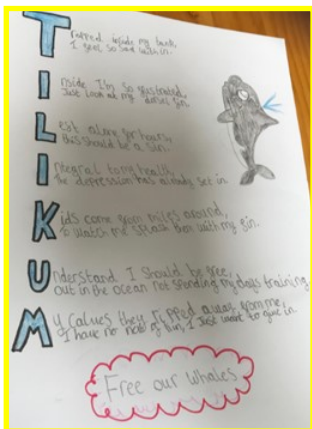 Trapped inside my tank,
I feel so sad within.
Inside I'm so frustrated,
Just look at my dorsal fin.
Left alone for hours,
this should be a sin.
Integral to my health,
the depression has already set in.
Kids come from miles around,
to watch me splash them with my fin.
Understand I should be free,
out in the ocean not spending my days training.
My calves they ripped away from me,
I have no need of fun, I just want to give in.
Free our whales